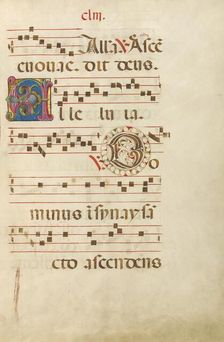 clm.
Alla. Asce
cuouae. dit deus.
Alle lu ia
Do
minus i synay sa
cto ascendens